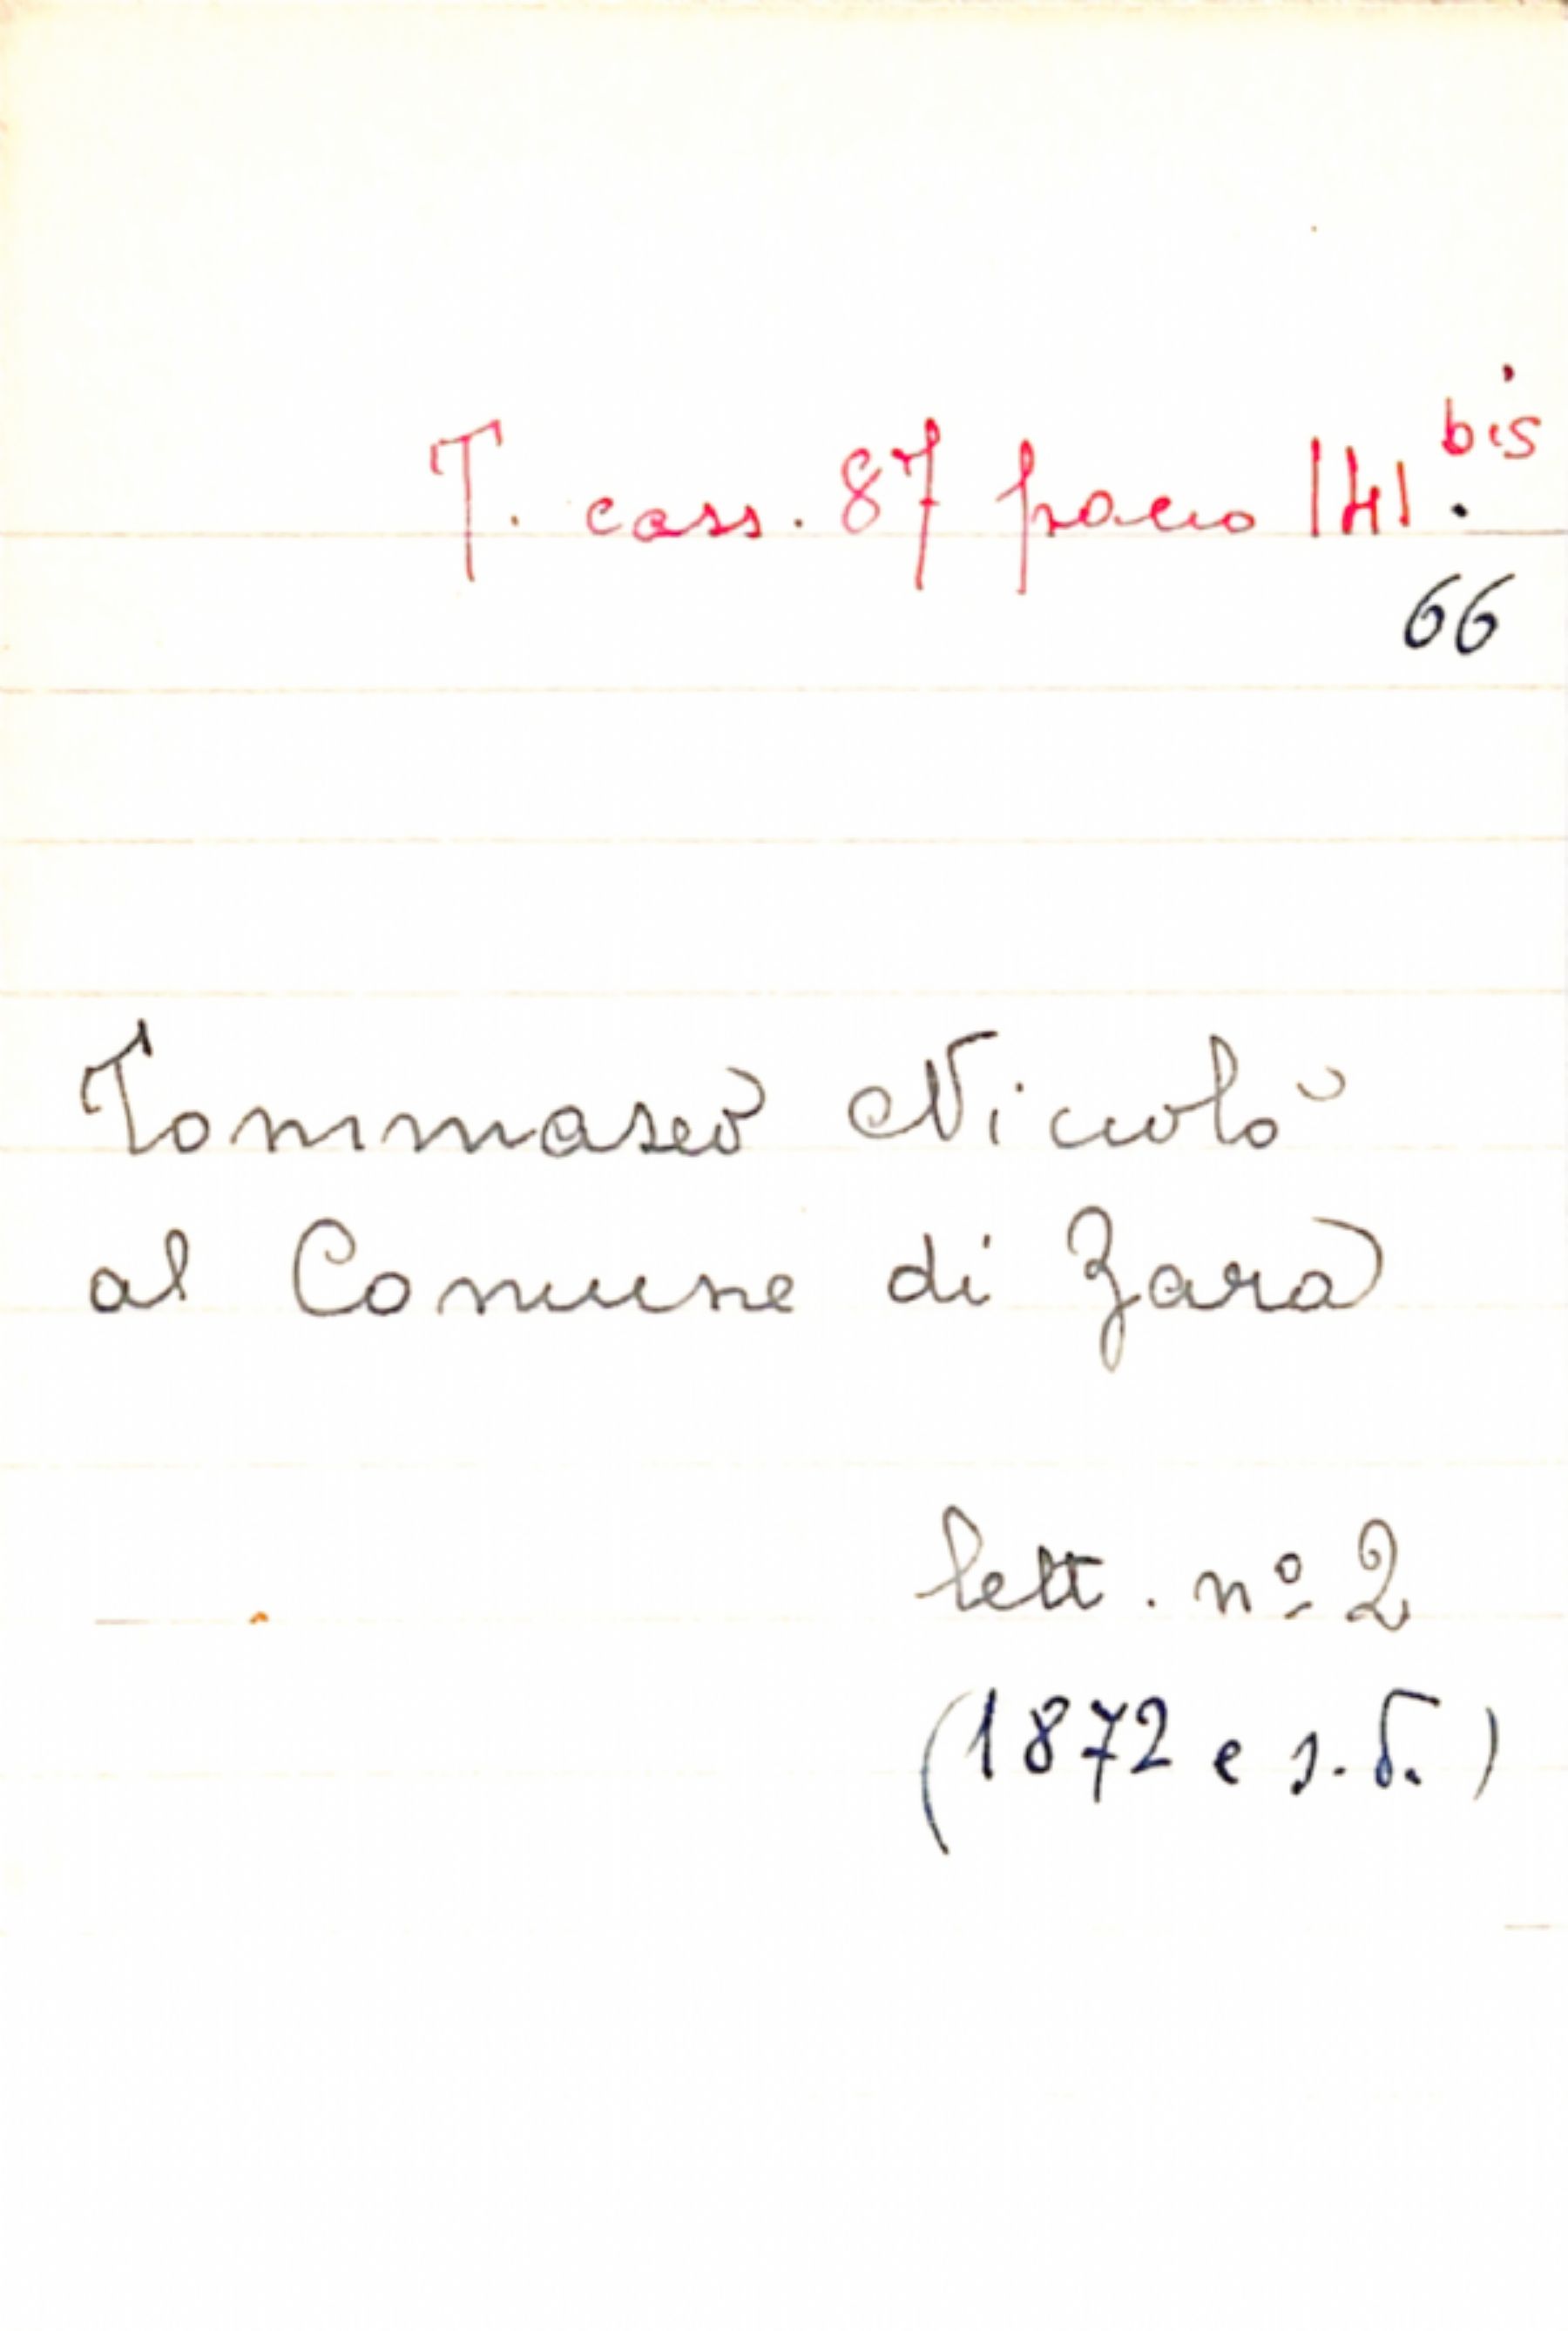 T. cass. 87 pacco 141. bis
66
Tommaseo Niccolò
al Comune di Zara
lett. nº 2
(1872 e s.d.)